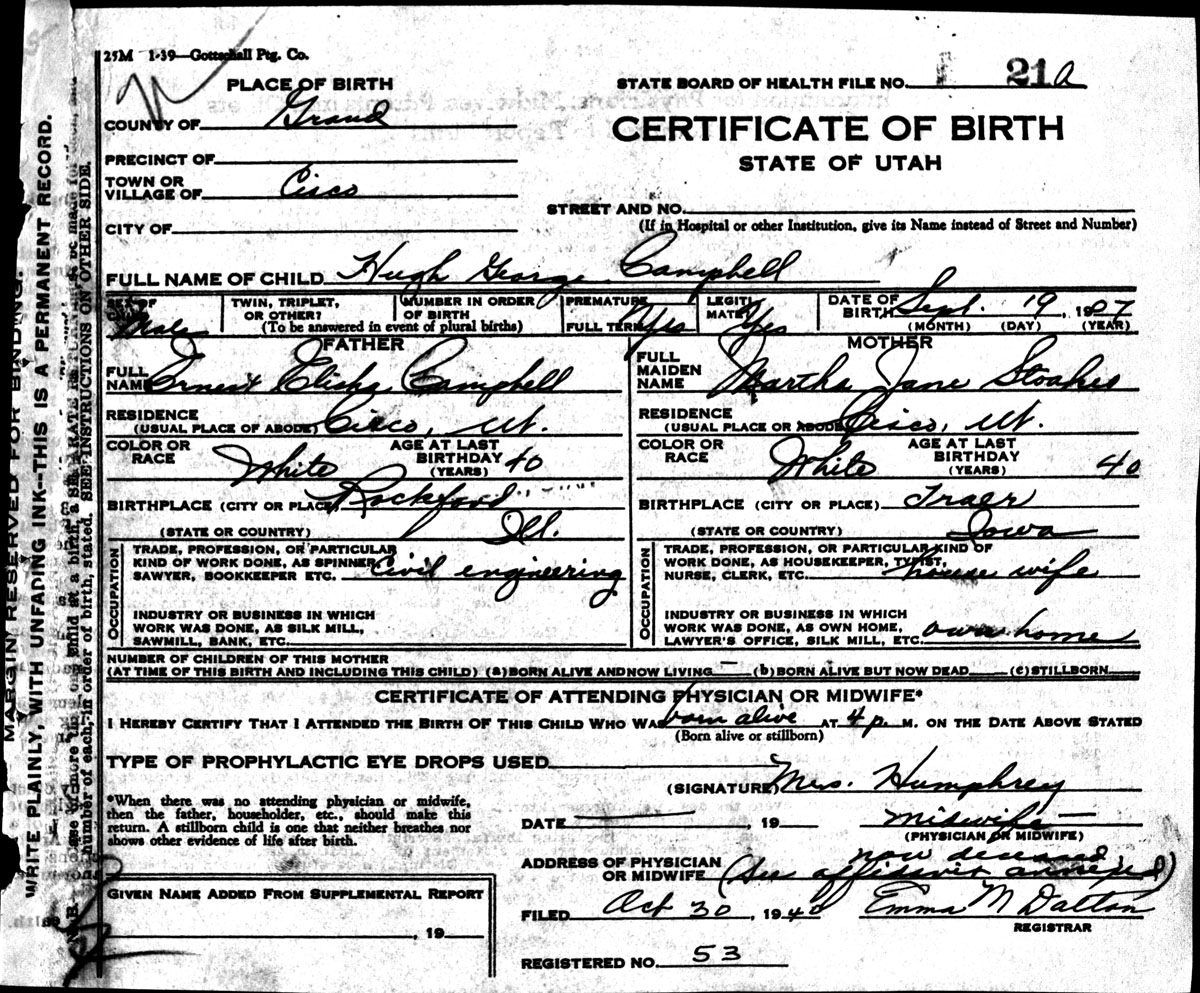 25M 1-39—Gottschall Ptg. Co.
PLACE OF BIRTH
STATE BOARD OF HEALTH FILE NO. 21a
COUNTY OF Grand
CERTIFICATE OF BIRTH
STATE OF UTAH
PRECINCT OF
TOWN OR VILLAGE OF Cisco
STREET AND NO.
(If in Hospital or other Institution, give its Name instead of Street and Number)
CITY OF
FULL NAME OF CHILD Hugh George Campbell
SEX OF CHILD Male
TWIN, TRIPLET, OR OTHER?
NUMBER IN ORDER OF BIRTH
(To be answered in event of plural births)
PREMATURE
FULL TERM Yes
LEGITIMATE Yes
DATE OF BIRTH Sept. 19, 1907
(MONTH) (DAY) (YEAR)
FATHER
FULL NAME Ernest Elisha Campbell
RESIDENCE (USUAL PLACE OF ABODE) Cisco, Ut.
COLOR OR RACE White
AGE AT LAST BIRTHDAY (YEARS) 40
BIRTHPLACE (CITY OR PLACE) Rockford
(STATE OR COUNTRY) Ill.
OCCUPATION
TRADE, PROFESSION, OR PARTICULAR
KIND OF WORK DONE, AS SPINNER,
SAWYER, BOOKKEEPER ETC. Civil engineering
INDUSTRY OR BUSINESS IN WHICH
WORK WAS DONE, AS SILK MILL,
SAWMILL, BANK, ETC.
MOTHER
FULL MAIDEN NAME Martha Jane Stoakes
RESIDENCE (USUAL PLACE OR ABODE) Cisco, Ut.
COLOR OR RACE White
AGE AT LAST BIRTHDAY (YEARS) 40
BIRTHPLACE (CITY OR PLACE) Traer
(STATE OR COUNTRY) Iowa
OCCUPATION
TRADE, PROFESSION, OR PARTICULAR KIND OF
WORK DONE, AS HOUSEKEEPER, TYPIST,
NURSE, CLERK, ETC. house wife
INDUSTRY OR BUSINESS IN WHICH
WORK WAS DONE, AS OWN HOME,
LAWYER'S OFFICE, SILK MILL, ETC. own home
NUMBER OF CHILDREN OF THIS MOTHER
(AT TIME OF THIS BIRTH AND INCLUDING THIS CHILD) (a) BORN ALIVE AND NOW LIVING — (b) BORN ALIVE BUT NOW DEAD (c) STILLBORN
CERTIFICATE OF ATTENDING PHYSICIAN OR MIDWIFE*
I HEREBY CERTIFY THAT I ATTENDED THE BIRTH OF THIS CHILD WHO WAS born alive AT 4 p. M. ON THE DATE ABOVE STATED
(Born alive or stillborn)
TYPE OF PROPHYLACTIC EYE DROPS USED
(SIGNATURE) Mrs. Humphrey
*When there was no attending physician or midwife,
then the father, householder, etc., should make this
return. A stillborn child is one that neither breathes nor
shows other evidence of life after birth.
DATE , 19 midwife
(PHYSICIAN OR MIDWIFE)
now deceased
ADDRESS OF PHYSICIAN OR MIDWIFE (See affidavit annexed)
GIVEN NAME ADDED FROM SUPPLEMENTAL REPORT
, 19
FILED Oct 30, 1940 Emma M Dalton
REGISTRAR
REGISTERED NO. 53
MARGIN RESERVED FOR BINDING.
WRITE PLAINLY, WITH UNFADING INK--THIS IS A PERMANENT RECORD.
number of each, in order of birth, stated. SEE INSTRUCTIONS ON OTHER SIDE.